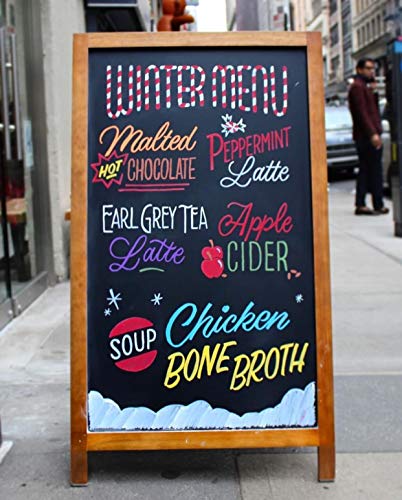 WINTER MENU
Malted
HOT CHOCOLATE
PEPPERMINT
Latte
EARL GREY TEA
Latte
Apple
CIDER
SOUP
Chicken
BONE BROTH